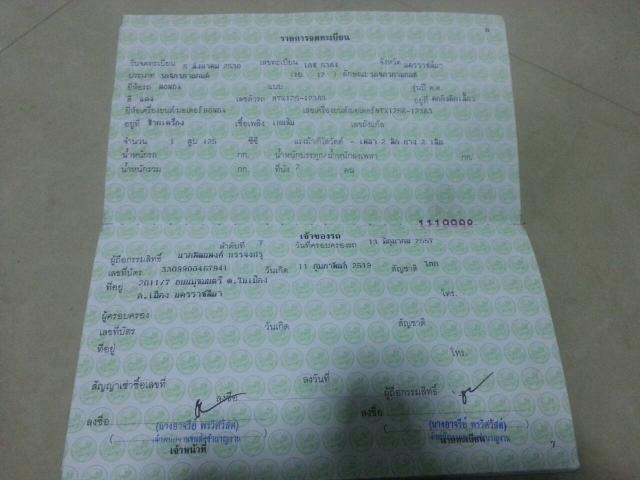 8
รายการจดทะเบียน
วันจดทะเบียน 5 สิงหาคม 2530 เลขทะเบียน 5384 จังหวัด นครราชสีมา
ประเภท รถจักรยานยนต์ (รย. 12 ) ลักษณะ รถจักรยานยนต์
ยี่ห้อรถ HONDA แบบ รุ่นปี ค.ศ.
สี แดง เลขตัวรถ อยู่ที่
ยี่ห้อเครื่องยนต์ HONDA เลขเครื่องยนต์
อยู่ที่ ข้างเครื่อง เชื้อเพลิง เบนซิน เลขถังแก๊ส
จำนวน 1 สูบ 125 ซีซี แรงม้า/กิโลวัตต์ - เพลา 2 ล้อ ยาง 2 เส้น
น้ำหนักรถ กก. น้ำหนักบรรทุก/น้ำหนักลงเพลา กก.
น้ำหนักรวม กก. ที่นั่ง 2 คน
1110000
เจ้าของรถ
ลำดับที่ 7 วันที่ครอบครองรถ 13 2557
ผู้ถือกรรมสิทธิ์
เลขที่บัตร 3309900467841 วันเกิด 11 กุมภาพันธ์ 2519 สัญชาติ ไทย
ที่อยู่ 2011/7 ต.ในเมือง
อ.เมือง นครราชสีมา โทร.
ผู้ครอบครอง
เลขที่บัตร วันเกิด สัญชาติ
ที่อยู่ โทร.
สัญญาเช่าซื้อเลขที่ ลงวันที่
ลงชื่อ ผู้ถือกรรมสิทธิ์
ลงชื่อ ลงชื่อ
(นางอาจรีย์ พรวิศวิสิต) (นางอาจรีย์ พรวิศวิสิต)
เจ้าพนักงานขนส่งชำนาญงาน เจ้าพนักงานขนส่งชำนาญงาน
เจ้าหน้าที่ นายทะเบียน
7